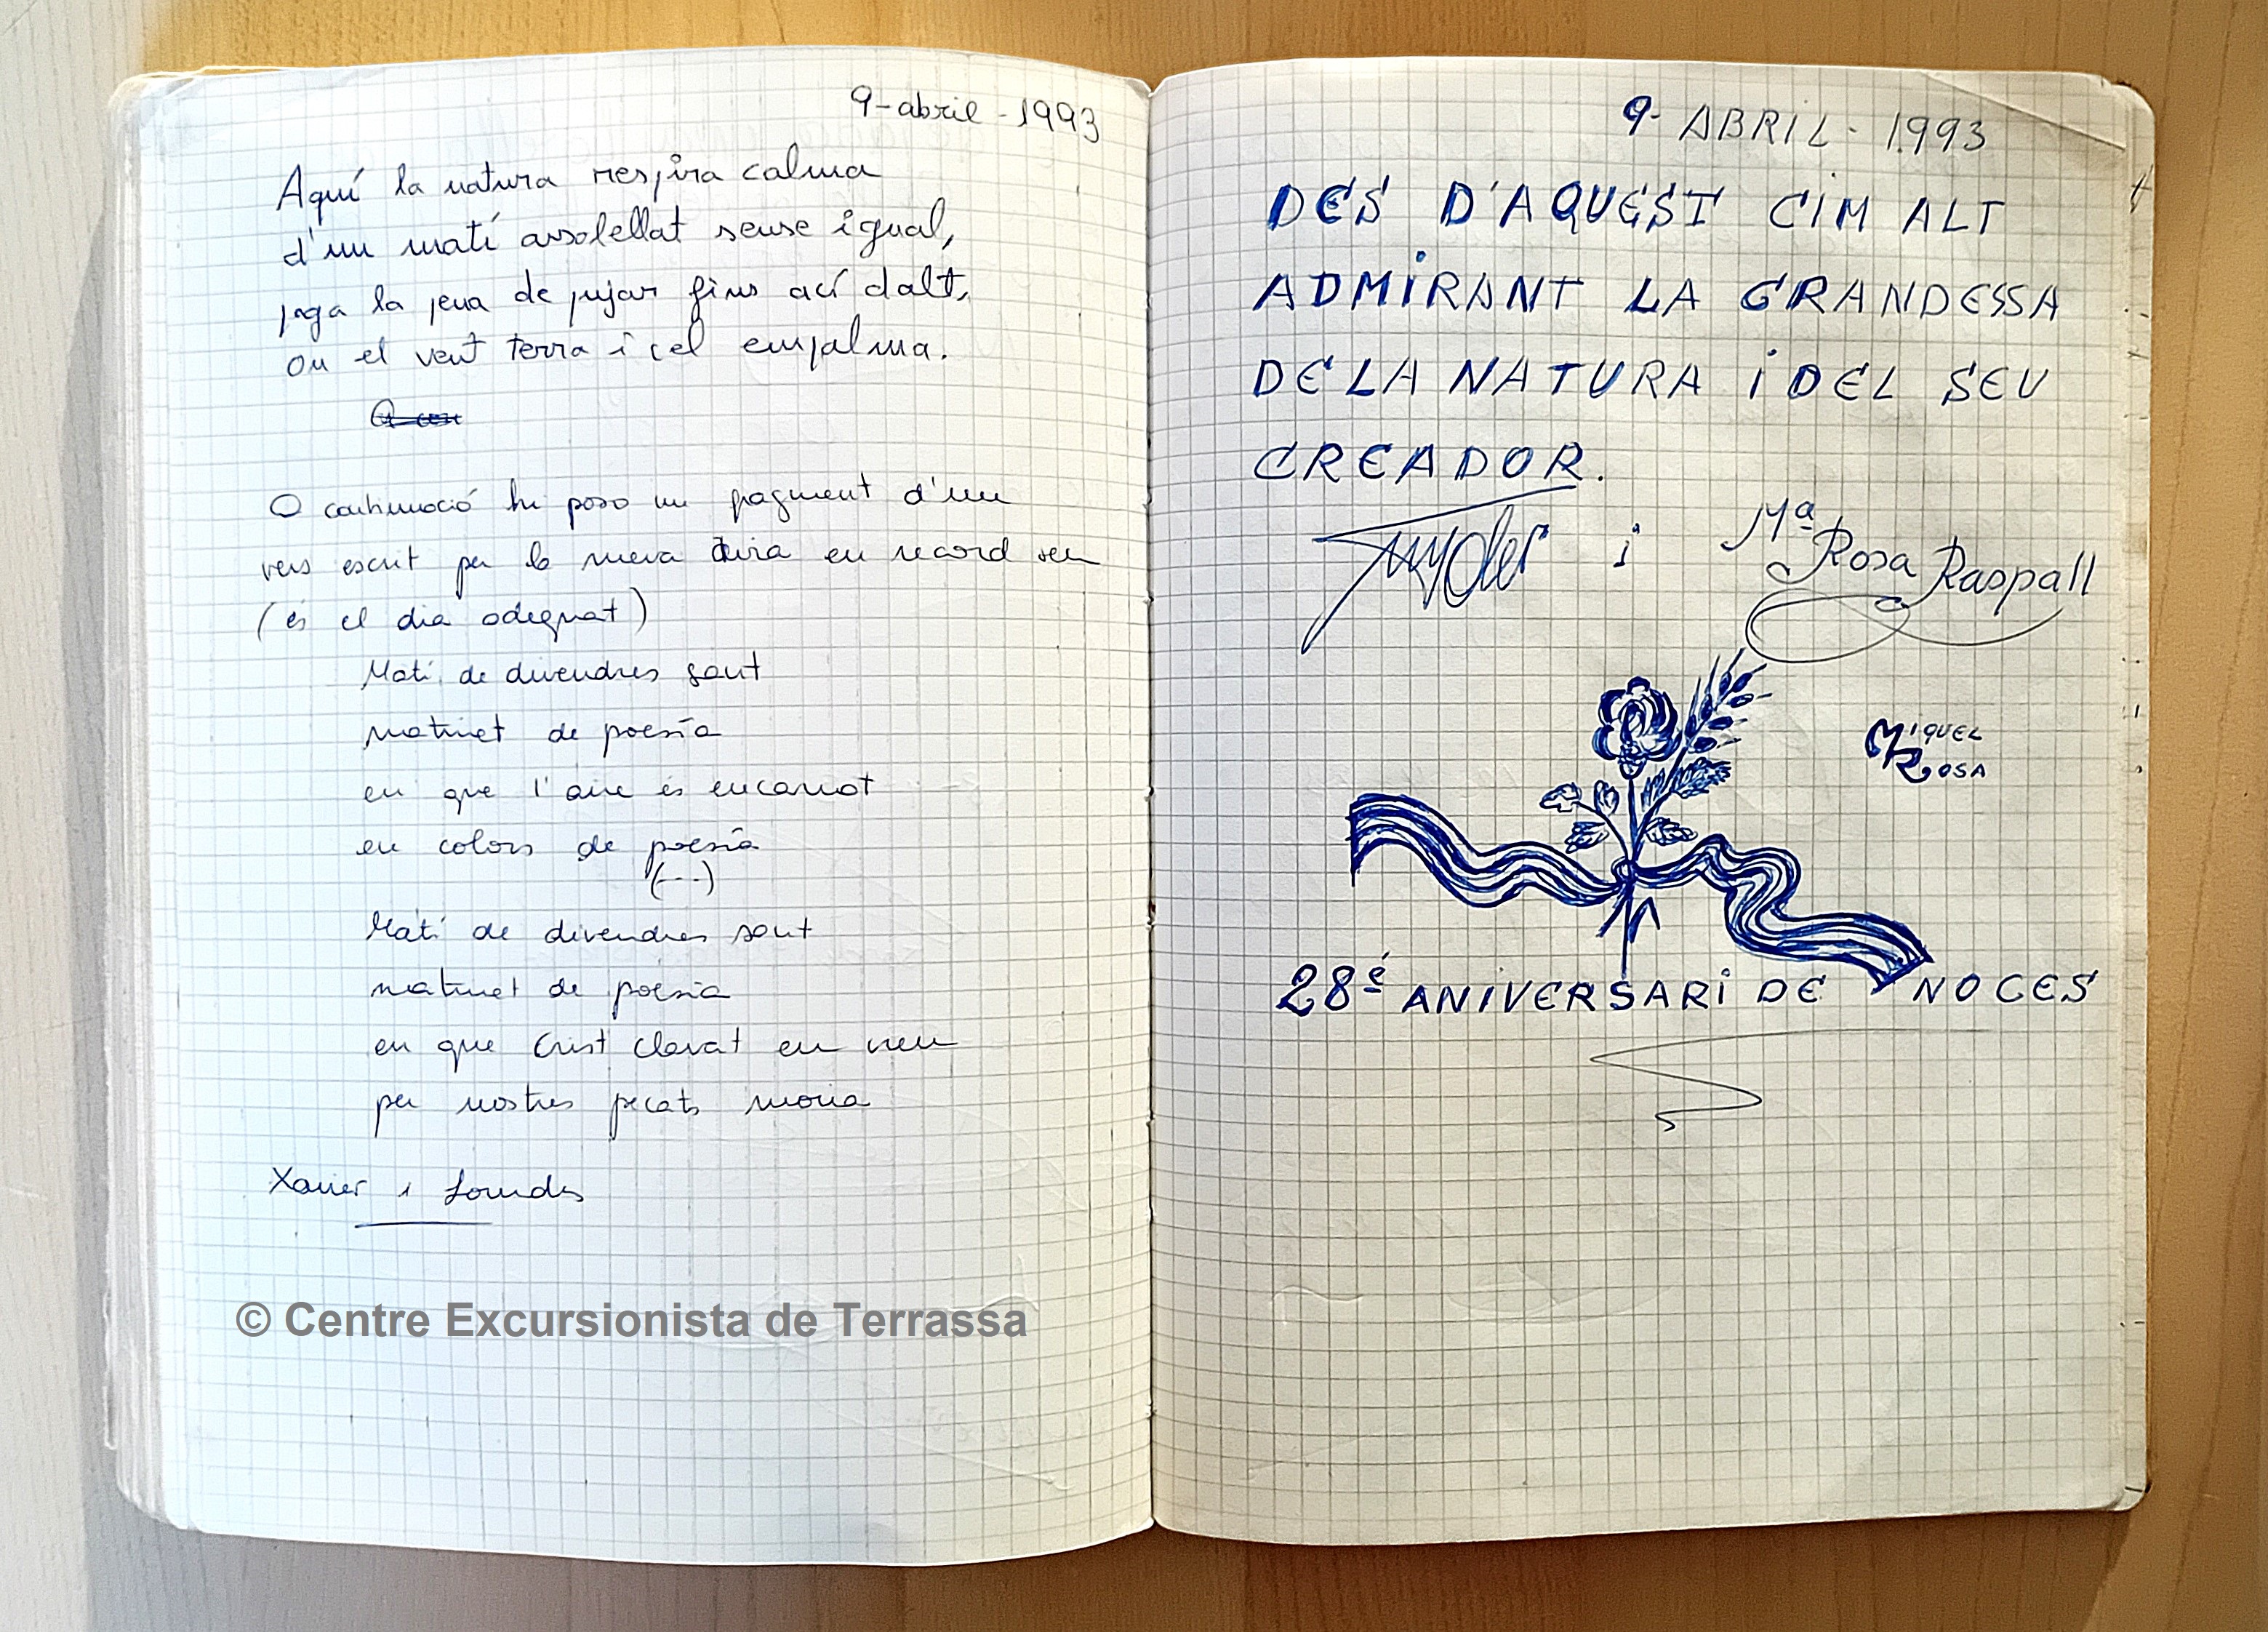 9-abril-1993
Aquí la natura respira calma
d'un matí assolellat sense igual,
paga la pena de pujar fins ací dalt,
on el vent terra i cel empalma.
A continuació hi poso un fragment d'un
vers escrit per la meva en record seu
(és el dia adequat)
Matí de divendres sant
matinet de poesía
en que l'aire és encarnat
en colors de poesía
(---)
Matí de divendres sant
matinet de poesia
en que Crist clavat en creu
per nostres pecats moria
Xavier i Lourdes
© Centre Excursionista de Terrassa
9-ABRIL-1993
DES D'AQUEST CIM ALT
ADMIRANT LA GRANDESSA
DE LA NATURA I DEL SEU
CREADOR.
i Mª Rosa Raspall
MIQUEL
ROSA
28é ANIVERSARI DE NOCES